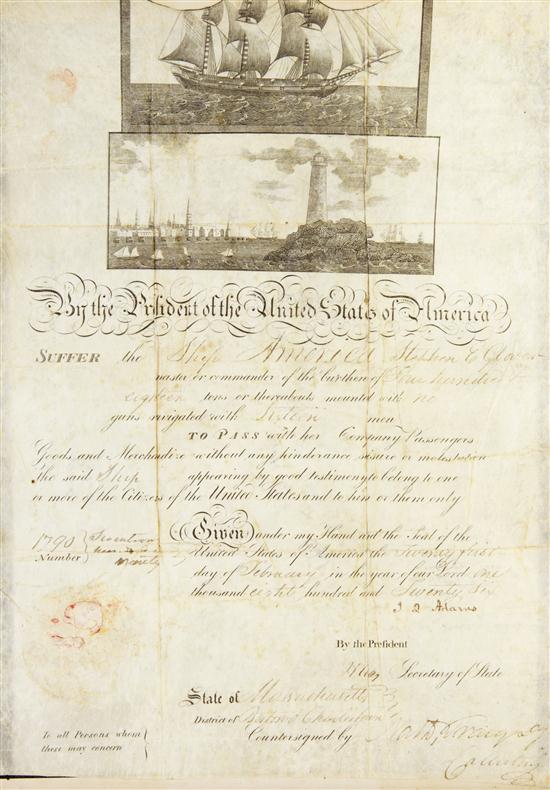 By the President of the United States of America
SUFFER the Ship America Stephen E Glover
master or commander of the burthen of Four hundred &
eighteen tons or thereabouts mounted with no
guns navigated with Sixteen men
TO PASS with her Company Passengers
Goods and Merchandize without any hinderance seisure or molestation
the said Ship appearing by good testimony to belong to one
or more of the Citizens of the United States and to him or them only
Given under my Hand and the Seal of the
United States of America the Twenty first
day of February in the year of our Lord one
thousand eight hundred and Twenty Six
1790
Number
ninety
J Q Adams
By the President
Secretary of State
State of Massachusetts
District of Boston & Charlestown
Countersigned by
To all Persons whom
these may concern